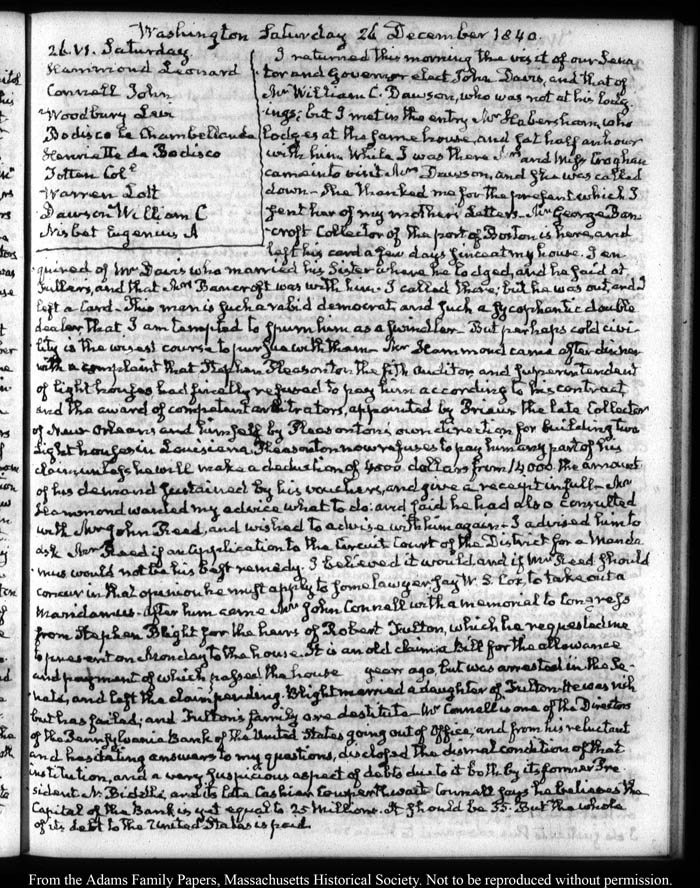 Washington Saturday 26 December 1840.
26. VI. Saturday
Hammond Leonard
Connell John
Woodbury Levi
Bodisco le Chambellan de
Henriette de Bodisco
Totten Col.
Warren Lott
Dawson William C
Nisbet Eugenius A
I returned this morning the visit of our Sena
tor and Governor elect John Davis, and that of
Mr William C. Dawson, who was not at his lodg-
ings; but I met in the entry Mr Habersham, who
lodges at the same house, and sat half an hour
with him. While I was there Mrs and Miss Croghan
came in to visit Mrs Dawson, and she was called
down. She thanked me for the present which I
sent her of my mother's Letters. Mr George Ban-
croft Collector of the port of Boston is here, and
left his card a few days since at my house. I en-
quired of Mr Davis who married his Sister where he lodged, and he said at
Fullers, and that Mrs Bancroft was with him. I called there; but he was out, and I
left a Card. This man is such a rabid democrat, and such a sycophantic double
dealer that I am tempted to spurn him as a swindler. But perhaps cold civi-
lity is the wisest course to pursue with them. Mr Hammond came after dinner
with a complaint that Stephen Pleasonton the fifth Auditor, and superintendent
of light houses had finally refused to pay him according to his contract,
and the award of competent arbitrators, appointed by the late Collector
of New Orleans and himself by Pleasonton's own direction for building two
Light houses in Louisiana. Pleasonton now refuses to pay him any part of his
claim unless he will make a deduction of 4000 dollars from 14000 the amount
of his demand sustained by his vouchers, and give a receipt in full. Mr
Hammond wanted my advice what to do: and said he had also consulted
with Mr John Reed, and wished to advise with him again. I advised him to
ask Mr Reed if an application to the Circuit Court of the District for a Manda
mus would not be his best remedy. I believed it would and if Mr Reed should
concur in that opinion he must apply to some lawyer, say W. S. Cox, to take out a
Mandamus. After him came Mr John Connell with a memorial to Congress
from Stephen Blight for the heirs of Robert Fulton, which he requested me
to present on Monday to the house. It is an old claim; a Bill for the allowance
and payment of which passed the house years ago, but was arrested in the Se-
nate, and left the claim pending. Blight married a daughter of Fulton. He was rich
but has failed; and Fulton's family are destitute. Mr Connell is one of the Directors
of the Pennsylvania Bank of the United States going out of Office, and from his reluctant
and hesitating answers to my questions, disclosed the dismal condition of that
institution, and a very suspicious aspect of debts due to it both by its former Pre-
sident N. Biddle, and its late Cashier Cowperthwait. Connell says he believes the
Capital of the Bank is yet equal to 25 Millions. It should be 35. But the whole
of its debt to the United States is paid.
From the Adams Family Papers, Massachusetts Historical Society. Not to be reproduced without permission.